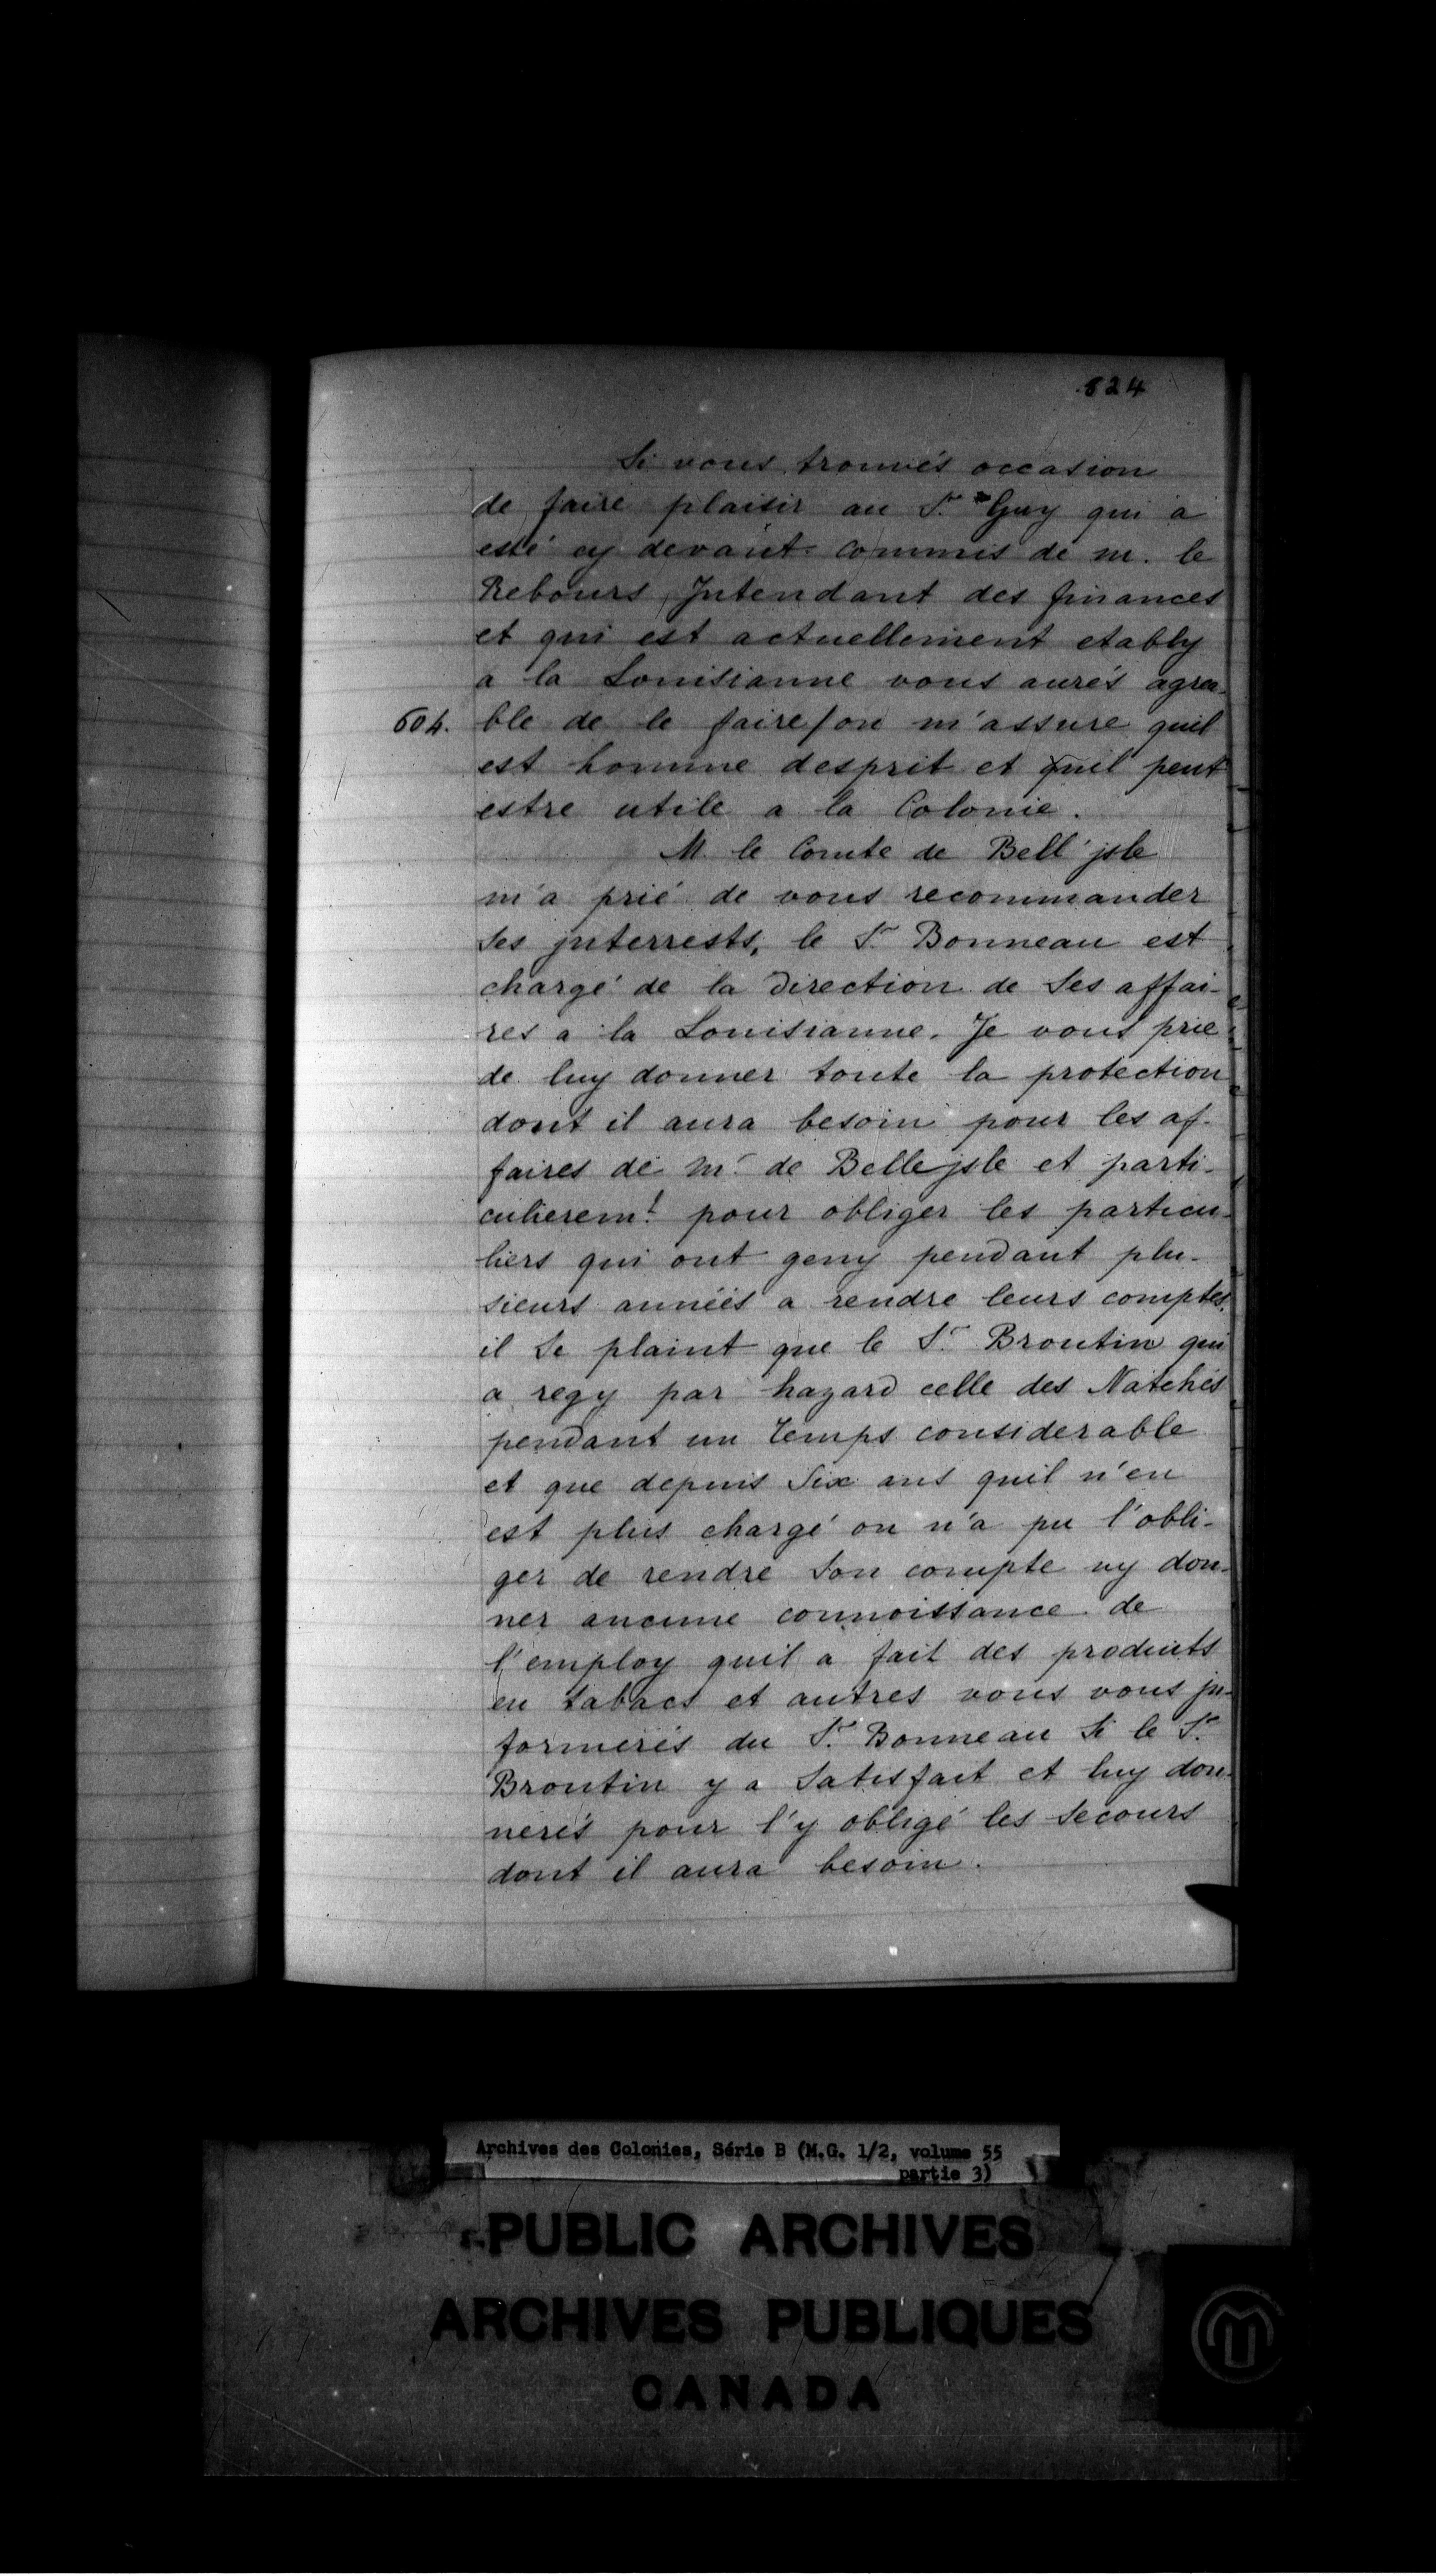 524
Si vous trouvés occasion
de faire plaisir au Sr. Guy qui a
esté cy devant commis de m. le
Rebours, Jntendant des finances
et qui est actuellement etably
a la Louisianne vous aurés agrea-
604. ble de le faire/on m'assure quil
est homme desprit et quil peut
estre utile a la Colonie.
M. le Comte de Bell'jsle
m'a prié de vous recommander
Ses jnterrests, le Sr. Bonneau est
chargé de la Direction de Ses affai-
res a la Louisianne. Je vous prie
de luy donner toute la protection
dont il aura besoin pour les af-
faires de mr. de Bellejsle et parti-
culieremt. pour obliger les particu-
liers qui ont geny pendant plu-
sieurs années a rendre leurs comptes,
il Se plaint que le Sr. Broutin qui
a regy par hazard celle des Natchés
pendant un temps considerable
et que depuis Six ans quil n'en
est plus chargé on n'a pu l'obli-
ger de rendre Son compte ny don-
ner aucune connoissance de
l'employ quil a fait des produits
en tabacs et autres vous vous jn-
formerés du Sr. Bonneau Si le Sr.
Broutin y a Satisfait et luy don-
nerés pour l'y obligé les Secours
dont il aura besoin.
Archives des Colonies, Série B (M.G. 1/2, volume 55
partie 3)
PUBLIC ARCHIVES
ARCHIVES PUBLIQUES
CANADA